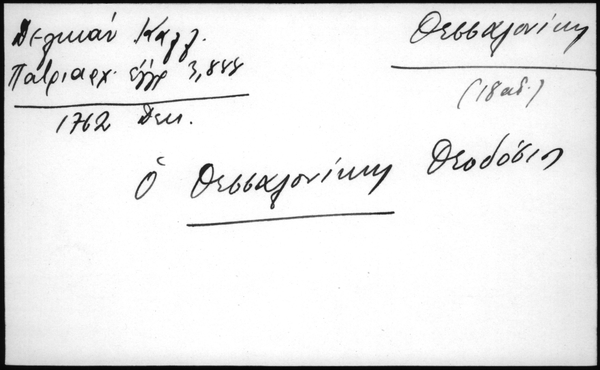 Δελικάν Καλλ.
Πατριαρχ. έγγρ 3,888
1762 Δεκ.
Θεσσαλονίκη
(18 αἰ.)
Ὁ Θεσσαλονίκης Θεοδόσιος